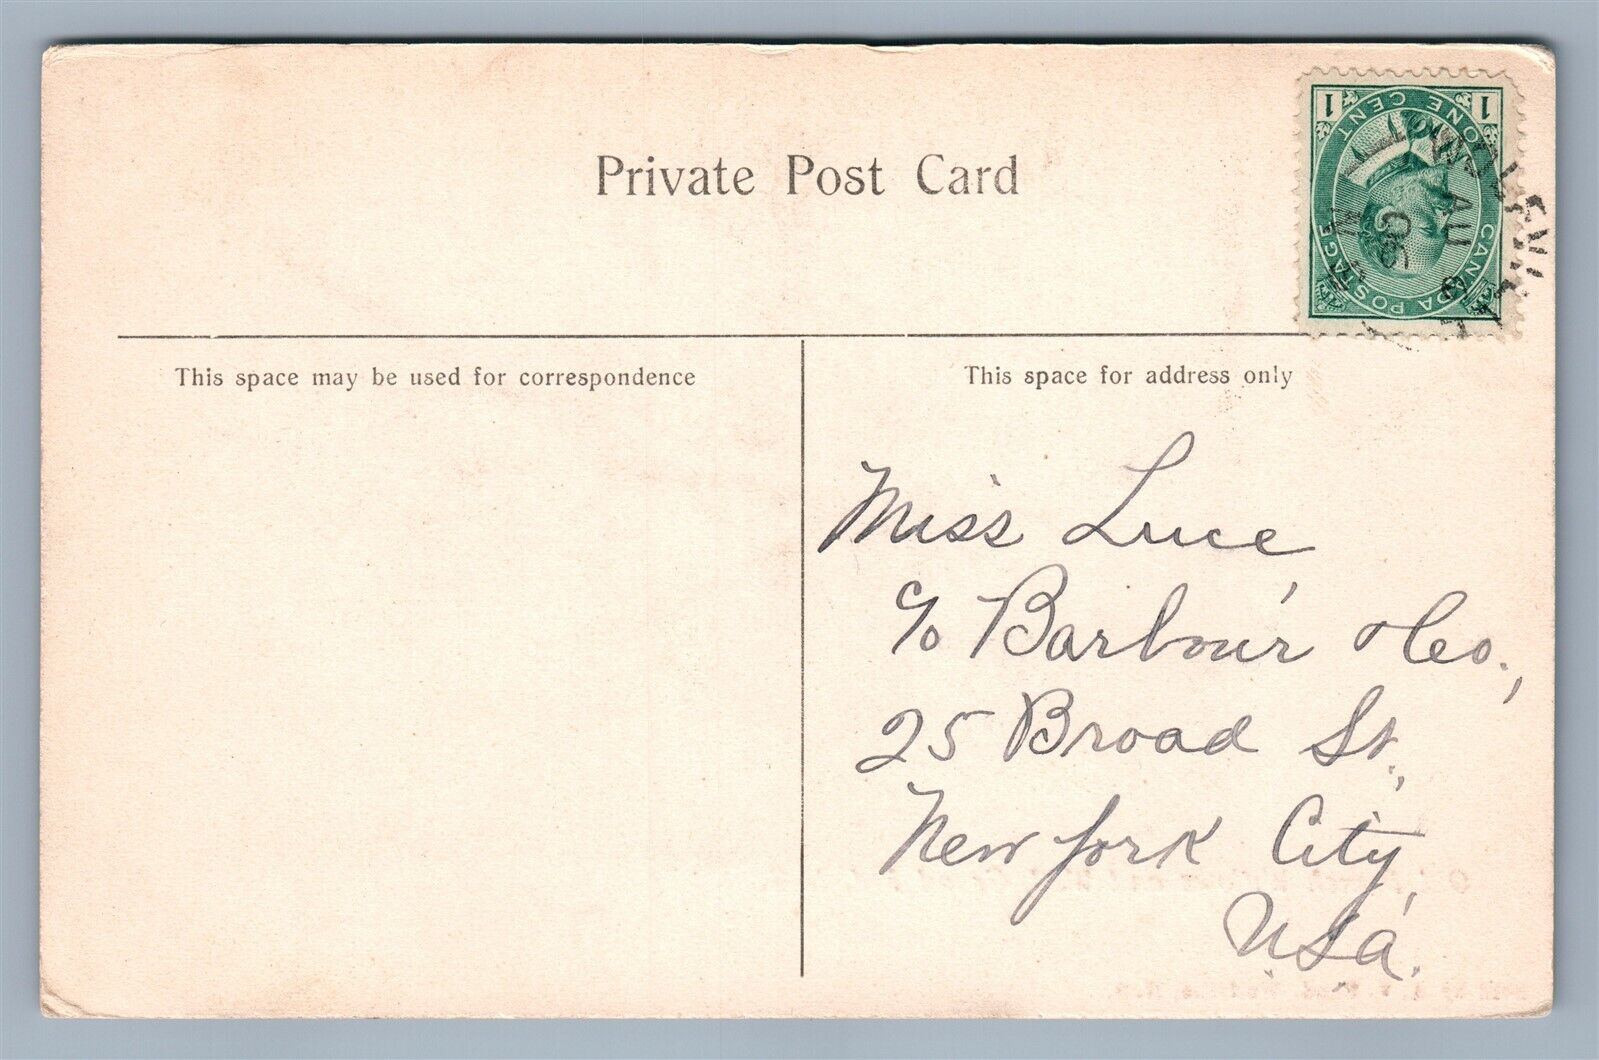 Private Post Card
1 1
CANADA POSTAGE
ONE CENT
AU
This space may be used for correspondence
This space for address only
Miss Luce
c/o Barbour & Co.,
25 Broad St.,
New York City,
USA.